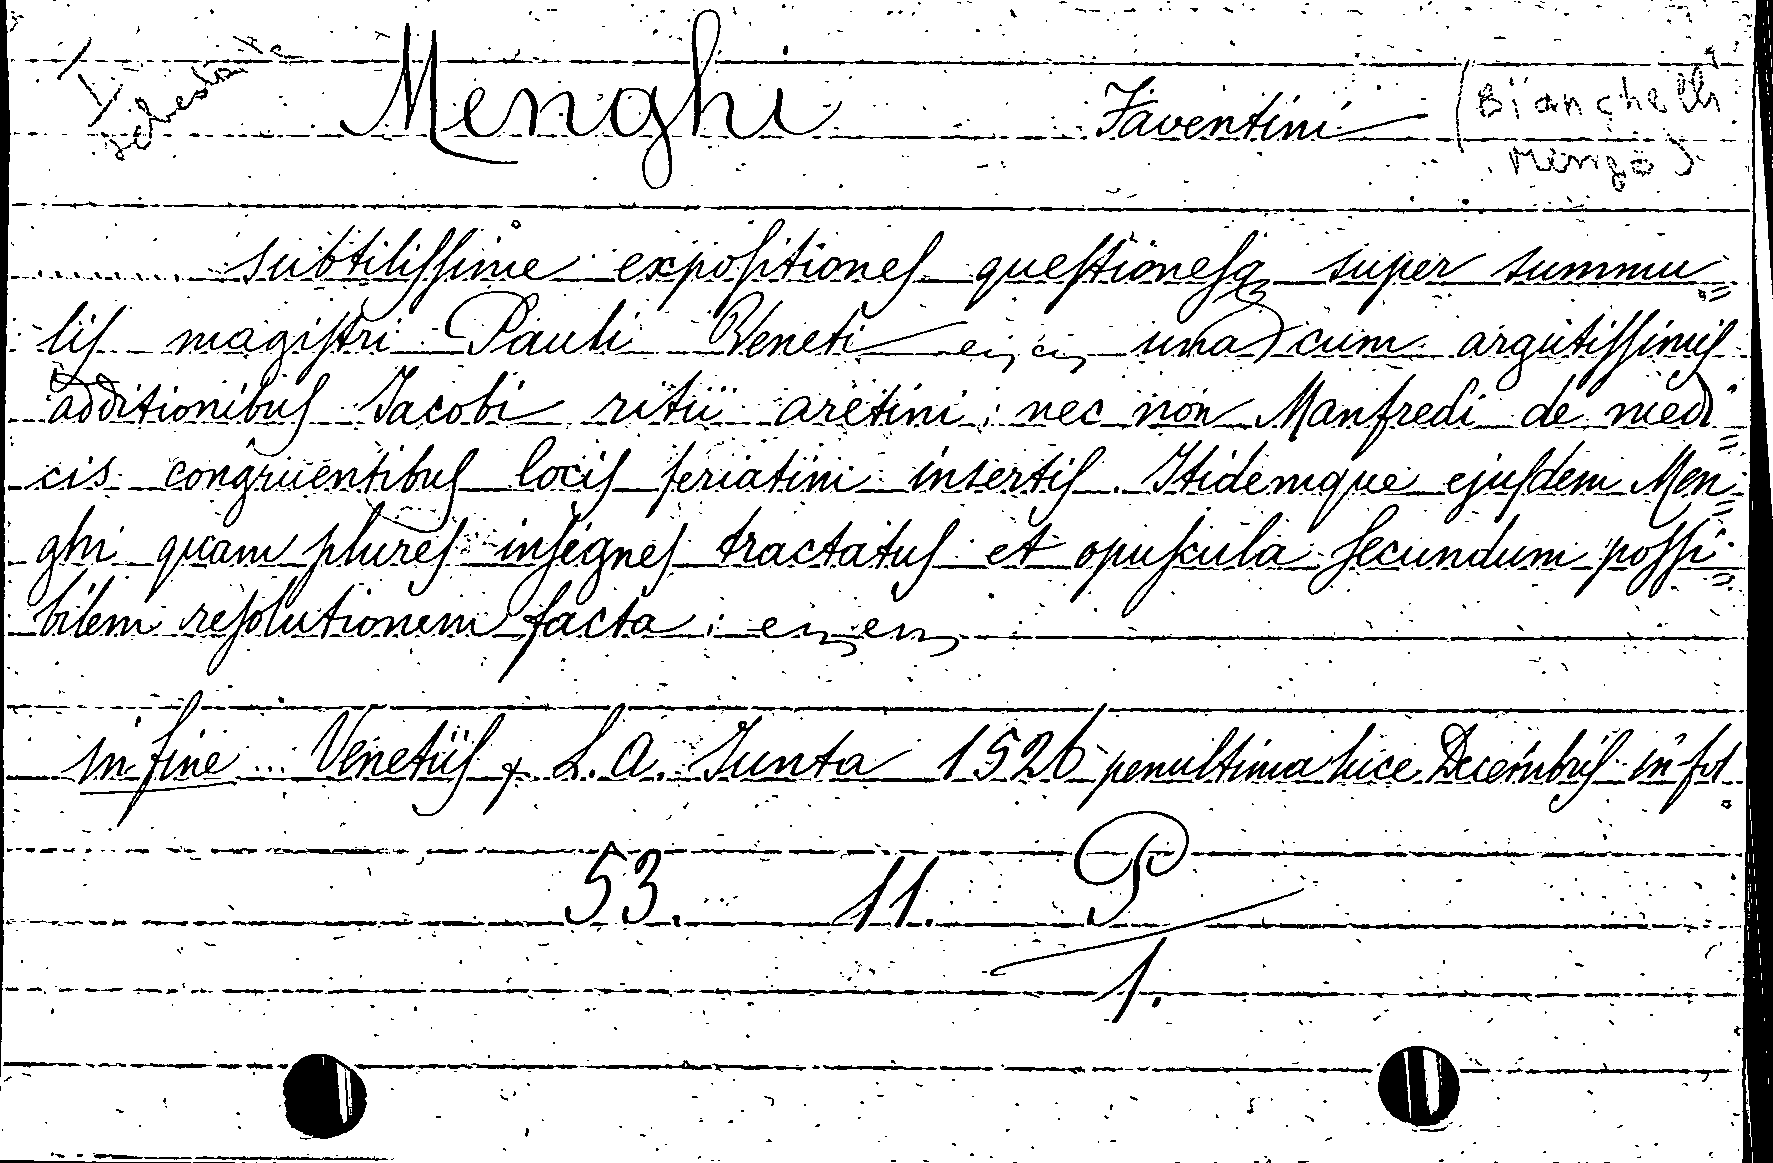 Menghi Faventini (Bianchelli
Mengo).
subtilissime expositiones questionesq super summu=
lis magistri Pauli Veneti una cum argutissimis
additionibus Jacobi ritii aretini: nec non Manfredi de medi=
cis congruentibus locis seriatim insertis. Itidemque ejusdem Men=
ghi quam plures insignes tractatus et opuscula secundum possi=
bilem resolutionem facta:
in fine Venetiis, L. A. Junta 1526 penultima luce Decembris in fol
53. 11. P
1.